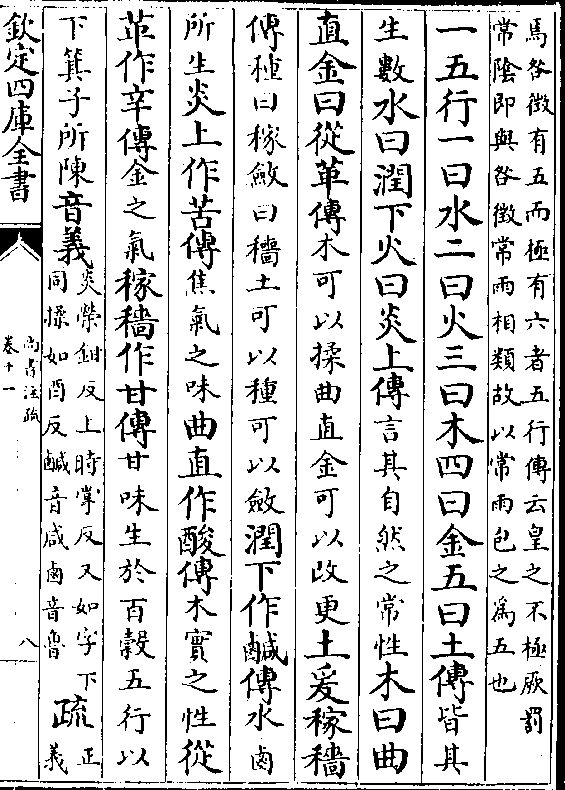 焉咎徴有五而極有六者五行傳云皇之不極厥罰
常陰即與咎徴常雨相類故以常雨包之為五也
一五行一曰水二曰火三曰木四曰金五曰土傳皆其
生數水曰潤下火曰炎上傳言其自然之常性木曰曲
直金曰從革傳木可以揉曲直金可以改更土爰稼穡
傳種曰稼斂曰穡土可以種可以斂潤下作鹹傳水鹵
所生炎上作苦傳焦氣之味曲直作酸傳木實之性從
革作辛傳金之氣稼穡作甘傳甘味生於百穀五行以
下箕子所陳音義炎榮鉗反上時掌反又如字下
同揉如酉反鹹音咸鹵音魯疏正
義
欽定四庫全書
尚書注疏
卷十一
八